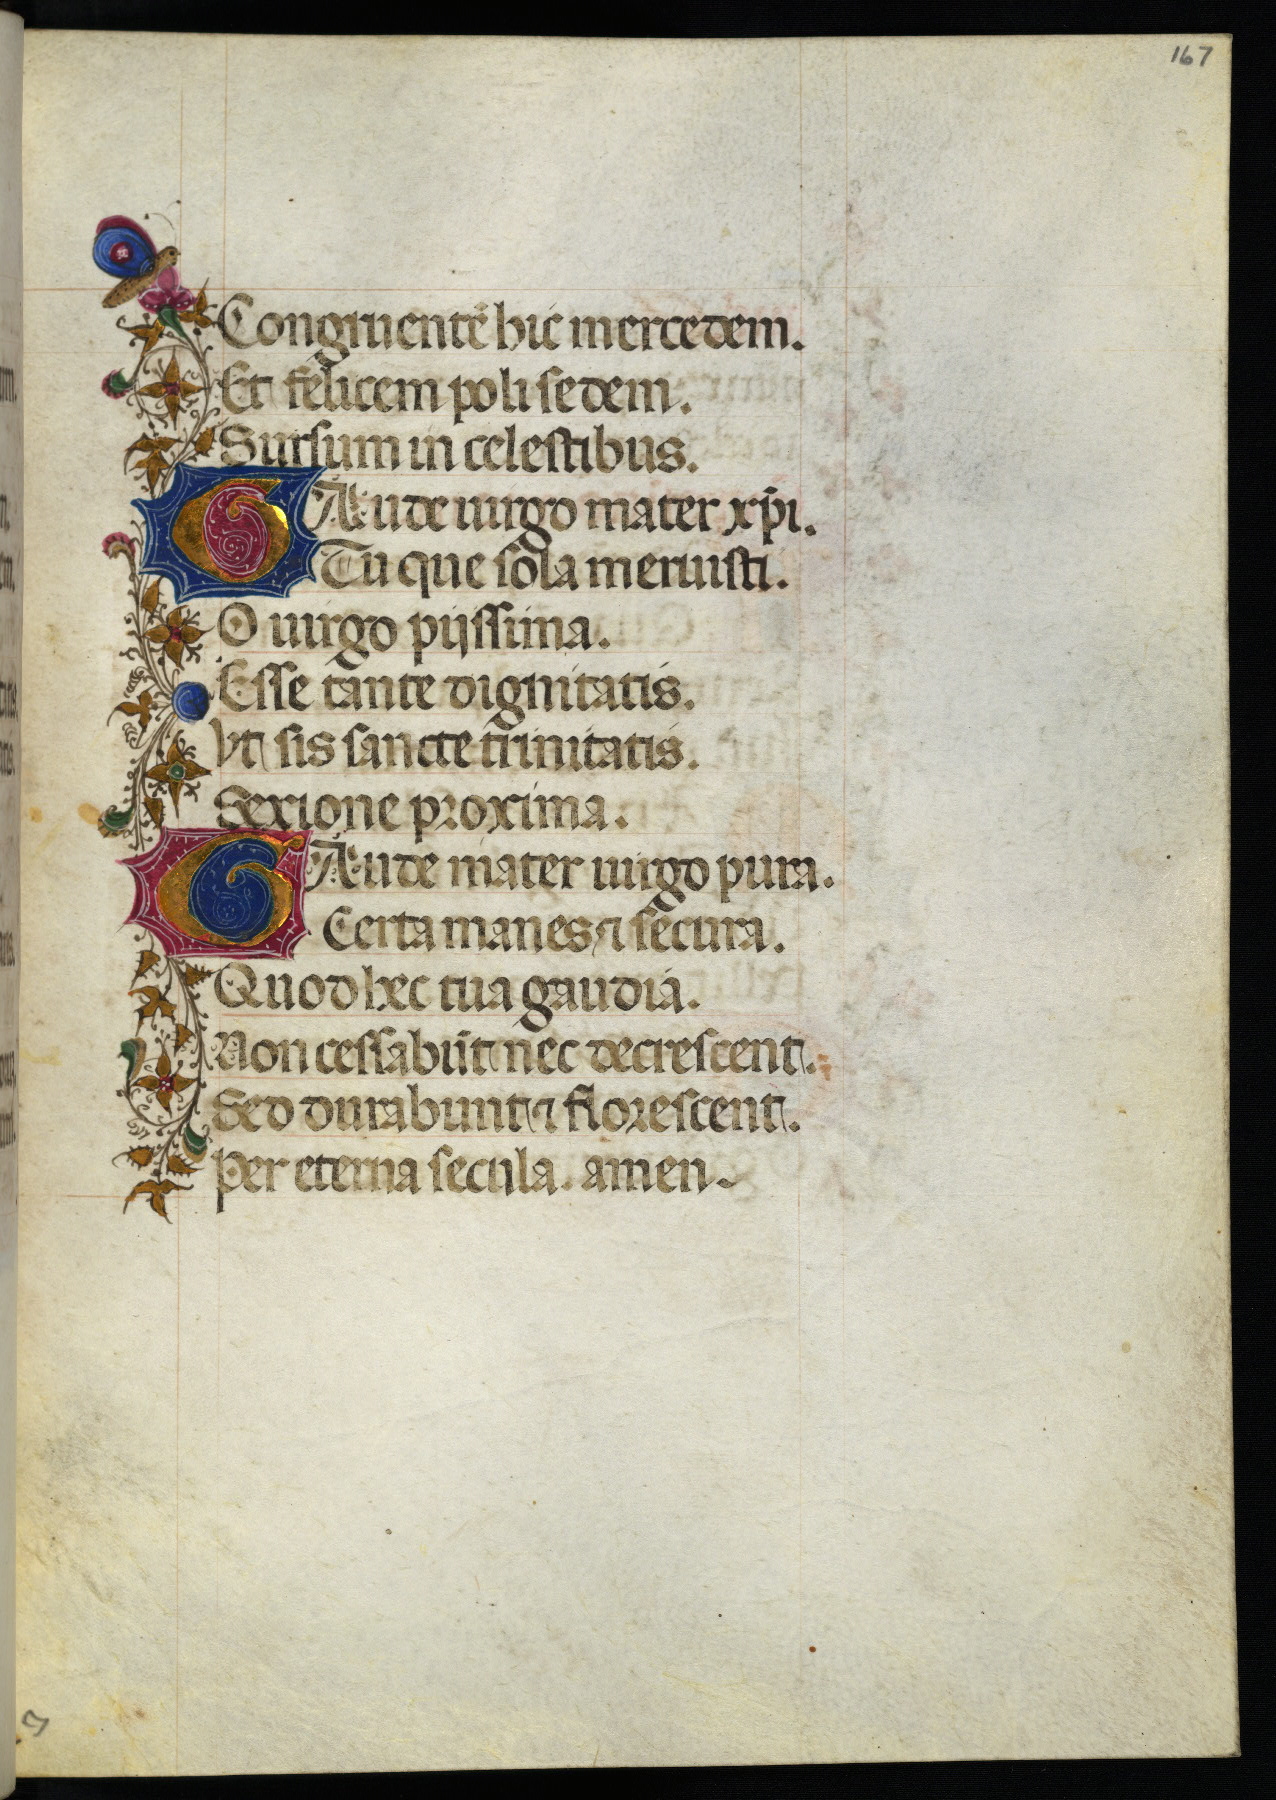 167
Congruentē hic mercedem.
Et felicem poli sedem.
Sursum in celestibus.
GAude uirgo mater xp̄i.
Tu que sola meruisti.
O uirgo pijssima.
Esse tante dignitatis.
Vt sis sancte trinitatis.
Sexione proxima.
GAude mater uirgo pura.
Certa manes ⁊ secura.
Quod hec tua gaudia.
Non cessabūt nec decrescent.
Sed durabunt ⁊ florescent.
Per eterna secula. amen.